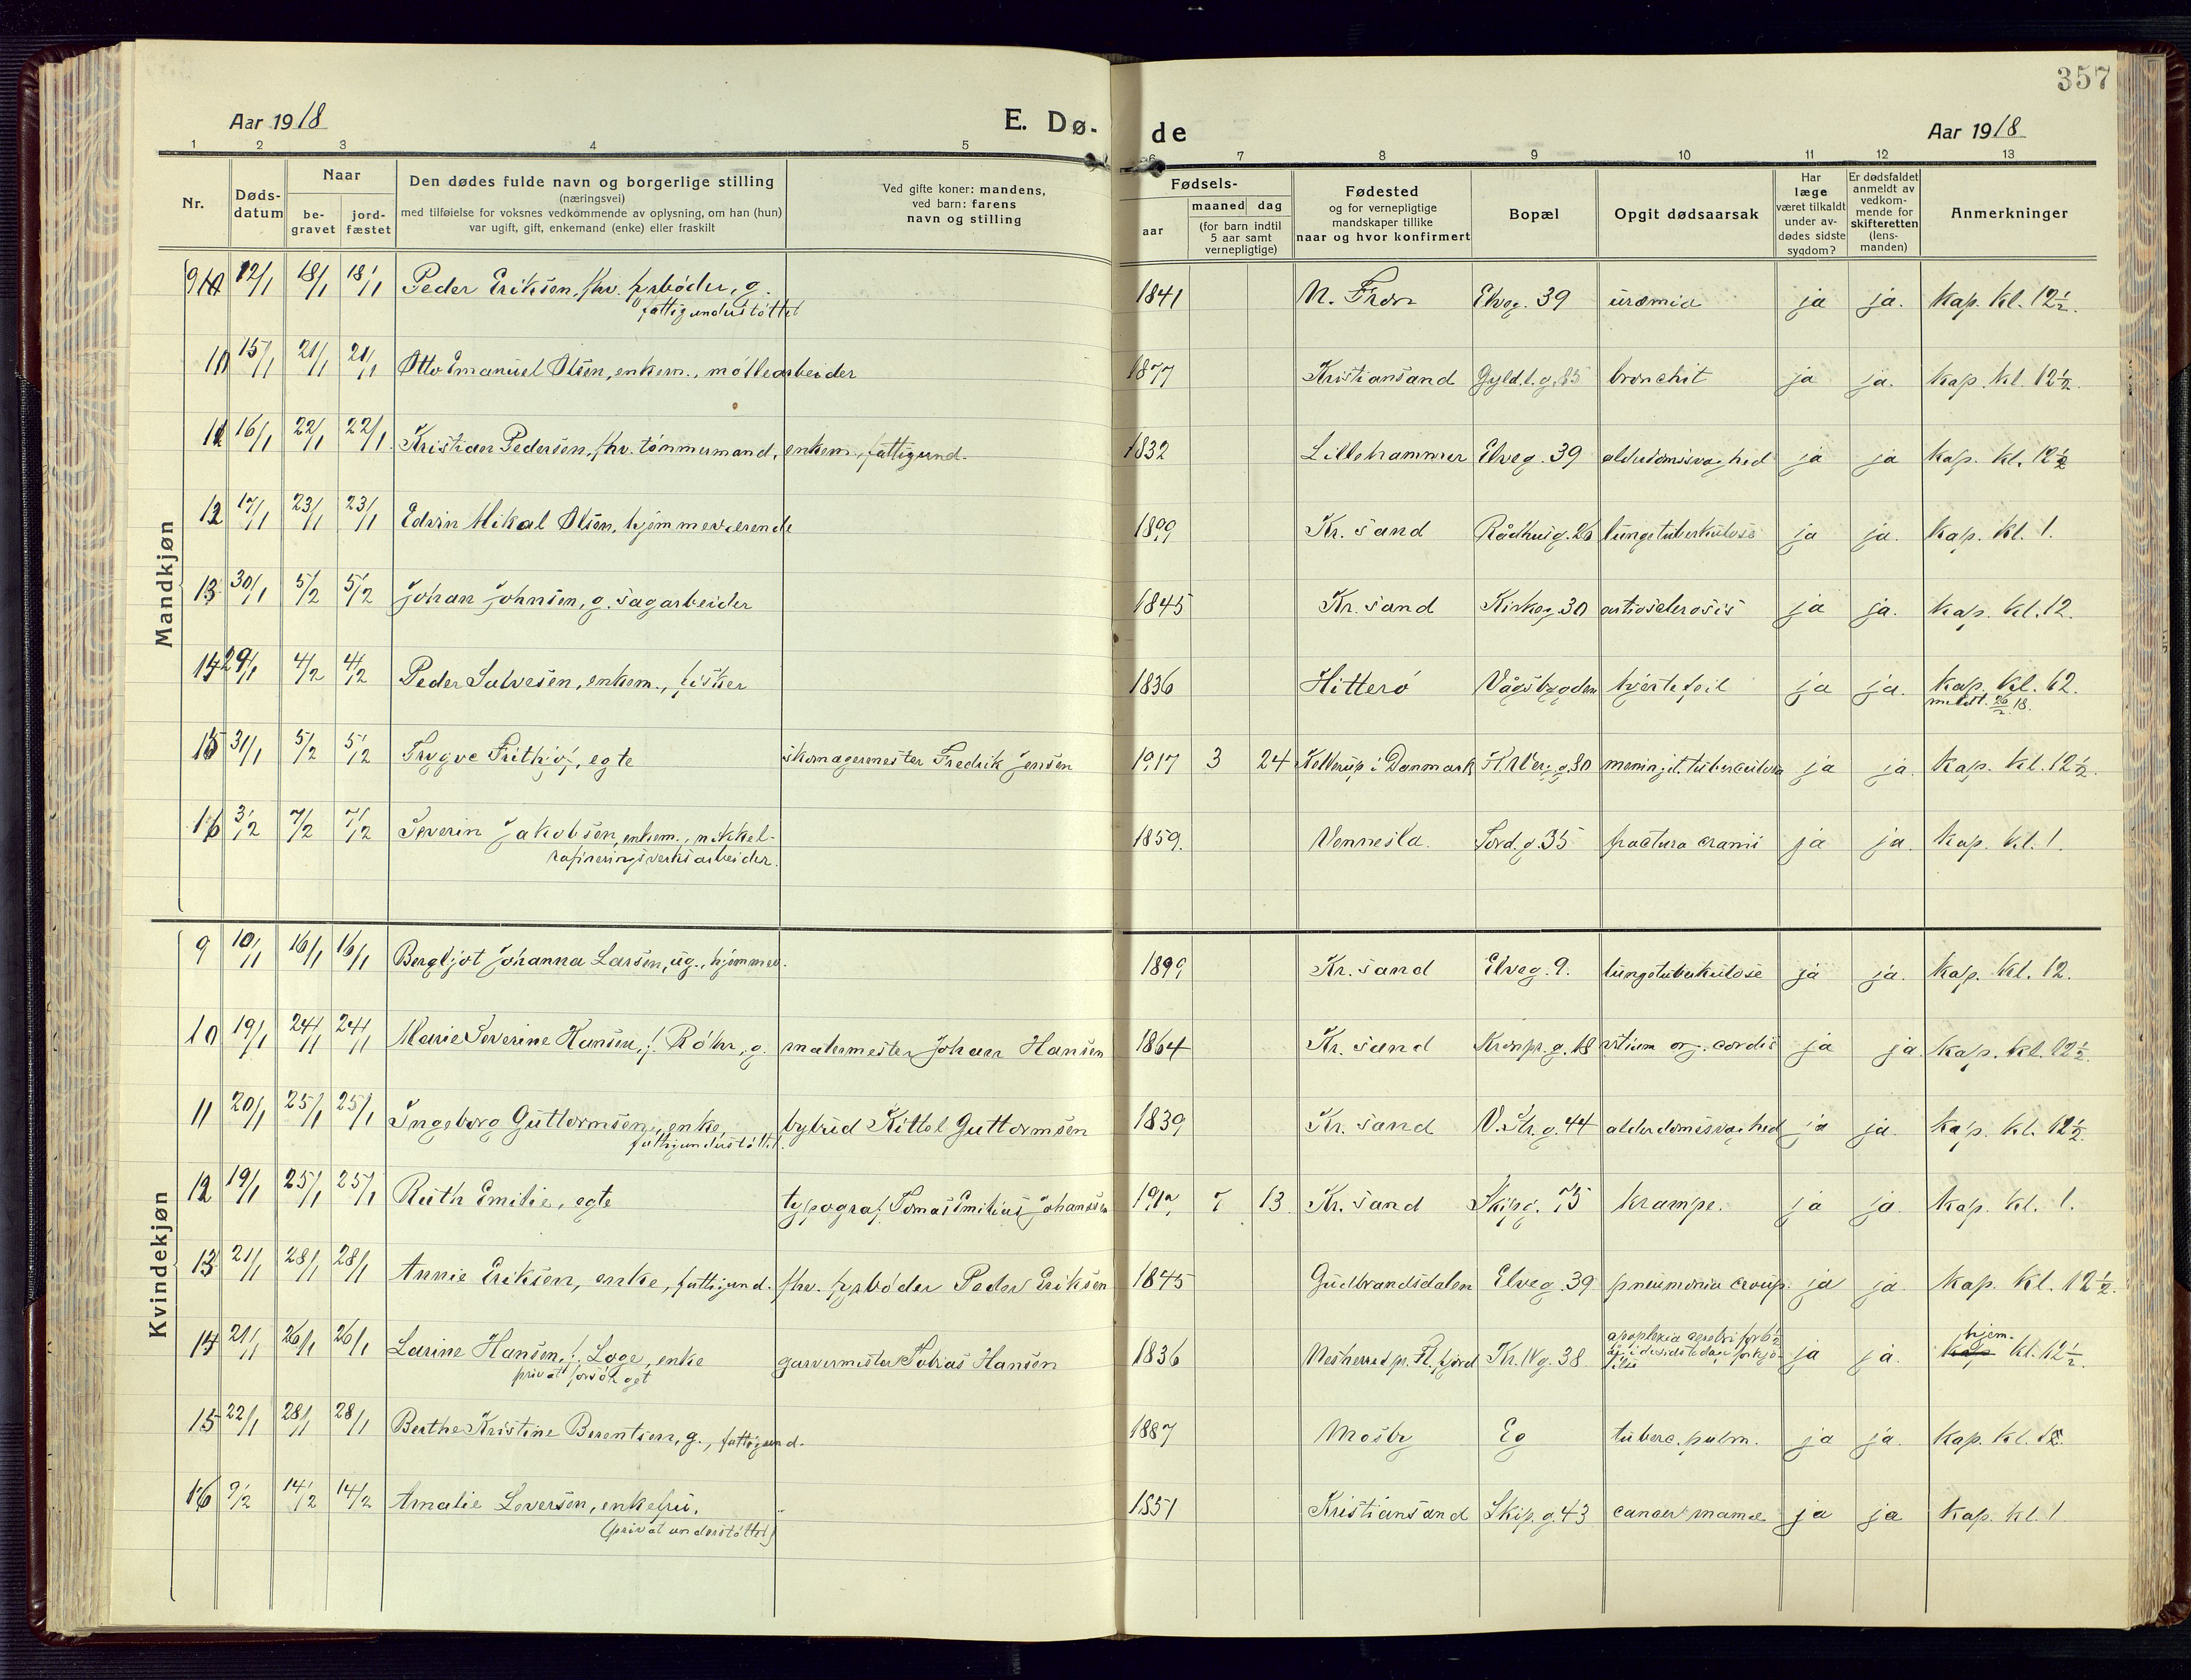 357
Aar 1918
E. Dø-
de
Aar 1918
1 2 3 4 5 6 7 8 9 10 11 12 13
Nr.
Døds-
datum
Naar
be-
gravet
jord-
fæstet
Den dødes fulde navn og borgerlige stilling
(næringsvei)
med tilføielse for voksnes vedkommende av oplysning, om han (hun)
var ugift, gift, enkemand (enke) eller fraskilt
Ved gifte koner: mandens,
ved barn: farens
navn og stilling
Fødsels-
aar
maaned dag
(for barn indtil
5 aar samt
vernepligtige)
Fødested
og for vernepligtige
mandskaper tillike
naar og hvor konfirmert
Bopæl
Opgit dødsaarsak
Har
læge
været tilkaldt
under av-
dødes sidste
sygdom?
Er dødsfaldet
anmeldt av
vedkom-
mende for
skifteretten
(lens-
manden)
Anmerkninger
Mandkjøn
9 12/1 18/1 18/1 Peder Eriksen, fhv. fyrbøder, g. 1841 N. Fron Elveg. 39 uræmia ja ja. Kap. kl. 12½.
fattigunderstøttet
10 15/1 21/1 21/1 Otto Emanuel Olsen, enkem., møllearbeider 1877 Kristiansand Gyld.l.g. bronchit ja ja. Kap. kl. 12½.
11 16/1 22/1 22/1 Kristian Pedersen, fhv. tømmermand, enkem., fattigund. 1832 Lillehammer Elveg. 39 alderdomssvaghed ja ja Kap. kl. 12½
12 17/1 23/1 23/1 Edvin Mikal Olsen, hjemmeværende 1899 Kr. sand Rådhusg. 26 lungetuberkulose ja ja. Kap. kl. 1.
13 30/1 5/2 5/2 Johan Johnsen, g. sagarbeider 1845 Kr. sand Kirkeg. 30 artiosclerosis ja ja. Kap. kl. 12.
14 29/1 4/2 4/2 Peder Salvesen, enkem., fisker 1836 Hitterø Vågsbygden hjertefeil ja ja. Kap. kl. 12.
meldt. 26/2 18.
15 31/1 5/2 5/2 Trygve Frithjof, egte skomagermester Fredrik Jensen 1917 3 24 Kellerup i Danmark 30 meningit. tuberculosa ja ja. Kap. kl. 12½.
16 3/2 7/2 7/2 Severin Jakobsen, enkem., nikkel- 1859. Vennesla. Tord.g. 35 fractura cranii ja ja. Kap. kl. 1.
rafineringsverksarbeider.
Kvindekjøn
9 10/1 16/1 16/1 Bergljot Johanna Larsen, ug., hjemmev. 1899 Kr. sand Elveg. 9. lungetuberkulose ja ja. Kap. kl. 12.
10 19/1 24/1 24/1 Marie Severine Hansen, f. Röhr, g. malermester Johan Hansen 1864 Kr. sand Kronpr.g. 18 vitium org. cordis ja ja Kap. kl. 12½.
11 20/1 25/1 25/1 Ingeborg Guttormsen, enke, bybud Kittel Guttormsen 1839 Kr. sand V. Str.g. 44 alderdomssvaghed ja ja. Kap. kl. 12½.
fattigunderstøttet.
12 19/1 25/1 25/1 Ruth Emilie, egte typograf Tomas Emilius Johansen 7 13. Kr. sand Skipg. 75 krampe. ja ja. Kap. kl. 1.
13 21/1 28/1 28/1 Annie Eriksen, enke, fattigund. fhv. fyrbøder Peder Eriksen 1845 Gudbrandsdalen Elveg. 39 pneumonia croup. ja ja. Kap. kl. 12½.
14 21/1 26/1 26/1 Larine Hansen, f. Løge, enke garvermester Tobias Hansen 1836 Nesherred p. Fl.fjord Kr. IV g. 38 apoplexia ja ja. hjem. kl. 12½.
privat forsørget
15 22/1 28/1 28/1 Berthe Kristine Berentsen, g., fattigund. 1887 Mosby Eg tuberc. pulm. ja ja. Kap. kl. 12.
16 9/2 14/2 14/2 Amalie Loversen, enkefru, 1851 Kristiansand Skip.g. 43 cancer mamæ ja ja Kap. kl. 1.
(privat understøttet)